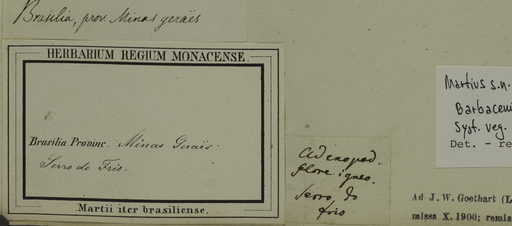 Brasilia, prov. Minas geraës
HERBARIUM REGIUM MONACENSE.
Brasilia Provinc. Minas Geraës:
Serro do Frio.
Martii iter brasiliense.
Adenopod.
flore igneo.
Serro do
frio
Martius s.n.
Barbaceni
Syst. veg.
Det. - re
Ad J. W. Goethart (L
missa X. 1900; remis